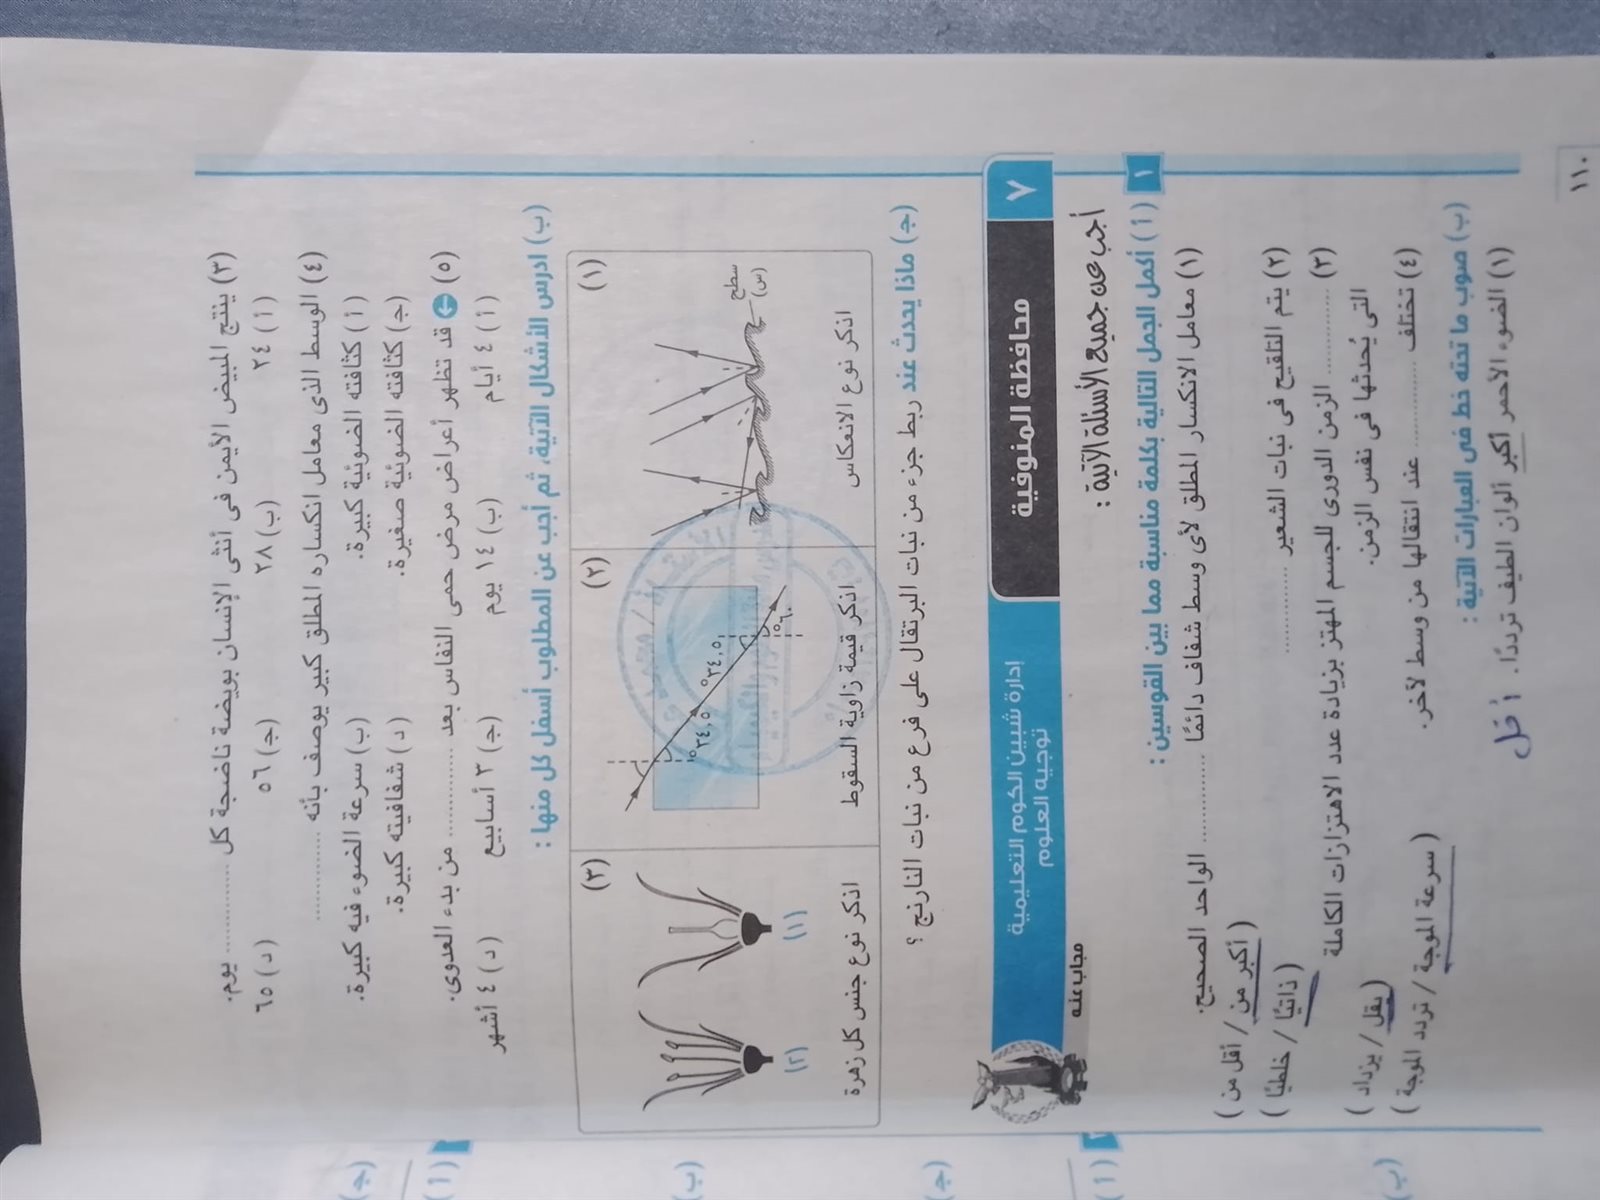 (٣) ينتج المبيض الأيمن فى أنثى الإنسان بويضة ناضجة كل ............ يوم.
( أ ) ٢٤ (ب) ٢٨ (جـ) ٥٦ ( د ) ٦٥
(٤) الوسط الذى معامل انكساره المطلق كبير يوصف بأنه ............
( أ ) كثافته الضوئية كبيرة. (ب) سرعة الضوء فيه كبيرة.
(جـ) كثافته الضوئية صغيرة. ( د ) شفافيته كبيرة.
(٥) قد تظهر أعراض مرض حمى النفاس بعد ............ من بدء العدوى.
( أ ) ٤ أيام (ب) ١٤ يوم (جـ) ٣ أسابيع ( د ) ٤ أشهر
(ب) ادرس الأشكال الآتية، ثم أجب عن المطلوب أسفل كل منها :
(١) (٢) (٣)
سطح
(س)
٣٤,٥° ٣٤,٥°
٦٠°
(١) (٢)
اذكر نوع الانعكاس
اذكر قيمة زاوية السقوط
اذكر نوع جنس كل زهرة
(جـ) ماذا يحدث عند ربط جزء من نبات البرتقال على فرع من نبات النارنج ؟
٧ محافظة المنوفية
إدارة شبين الكوم التعليمية
توجيه العلوم
مجاب عنه
أجب عن جميع الأسئلة الآتية :
١ ( أ ) أكمل الجمل التالية بكلمة مناسبة مما بين القوسين :
(١) معامل الانكسار المطلق لأى وسط شفاف دائمًا ............ الواحد الصحيح.
( أكبر من / أقل من )
(٢) يتم التلقيح فى نبات الشعير ............ ( ذاتيًا / خلطيًا )
(٣) ............ الزمن الدورى للجسم المهتز بزيادة عدد الاهتزازات الكاملة
التى يُحدثها فى نفس الزمن. ( يقل / يزداد )
(٤) تختلف ............ عند انتقالها من وسط لآخر. ( سرعة الموجة / تردد الموجة )
(ب) صوب ما تحته خط فى العبارات الآتية :
(١) الضوء الأحمر أكبر ألوان الطيف ترددًا. أقل
١١٠